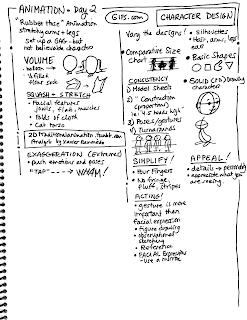 ANIMATION - Day 2
"Rubber Hose" Animation
stretchy arms + legs
set up a GAG - but
not believable characters
VOLUME
balloon
1/2 filled
flour sack
SQUASH + STRETCH
• Facial features
jowls, flesh, muscles
• Folds of cloth
• Cat torso
2D traditionalanimation.tumblr.com
Analysis by
EXAGGERATION (EXTREMES)
• push emotions and poses
"TAP" ----> WHAM!
Gifs.com
CHARACTER DESIGN
Vary the designs!
• Comparative Size
Chart
CONSISTENCY
1) Model Sheets
2) "Construction"
(proportion)
ie: 4.5 heads high
3) Poses/gestures
4) Turnarounds
SIMPLIFY!
• Four Fingers
• No fringe,
fluff, stripes
ACTING!
• gesture is more
important than
facial expression
• figure drawing
• observational
sketching
• Reference
• FACIAL Expression
- use a mirror
• Silhouettes
• Hair, arms, legs
ears
• Basic Shapes
• SOLID (3D) Drawing
character
APPEAL!
• details → personality
• appreciate what you
are seeing.